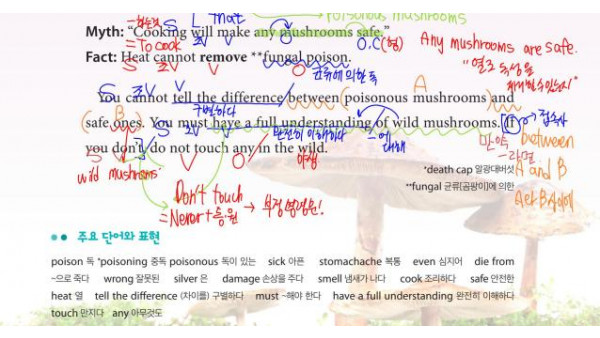 poisonous mushrooms
S L that
Myth: "Cooking will make any mushrooms safe."
= To cook 조V V O O.C(형) Any mushrooms are safe.
S 조V V O
Fact: Heat cannot remove **fungal poison.
균류에 의한 독
"열로 독성을
S 조V V A
You cannot tell the difference between (poisonous mushrooms) and
구별하다
B S 조V V 접속사
safe ones. You must have a full understanding of wild mushrooms. If
완전히 이해하다 ~에 대해
만약 ~라면
you don't, do not touch any in the wild.
S V V O 야생
between A and B
A와 B 사이에
wild mushrooms
*death cap 알광대버섯
**fungal 균류[곰팡이]에 의한
Don't touch
= Never + 동원 → 부정명령문!
주요 단어와 표현
poison 독 *poisoning 중독 poisonous 독이 있는 sick 아픈 stomachache 복통 even 심지어 die from
~으로 죽다 wrong 잘못된 silver 은 damage 손상을 주다 smell 냄새가 나다 cook 조리하다 safe 안전한
heat 열 tell the difference (차이를) 구별하다 must ~해야 한다 have a full understanding 완전히 이해하다
touch 만지다 any 아무것도